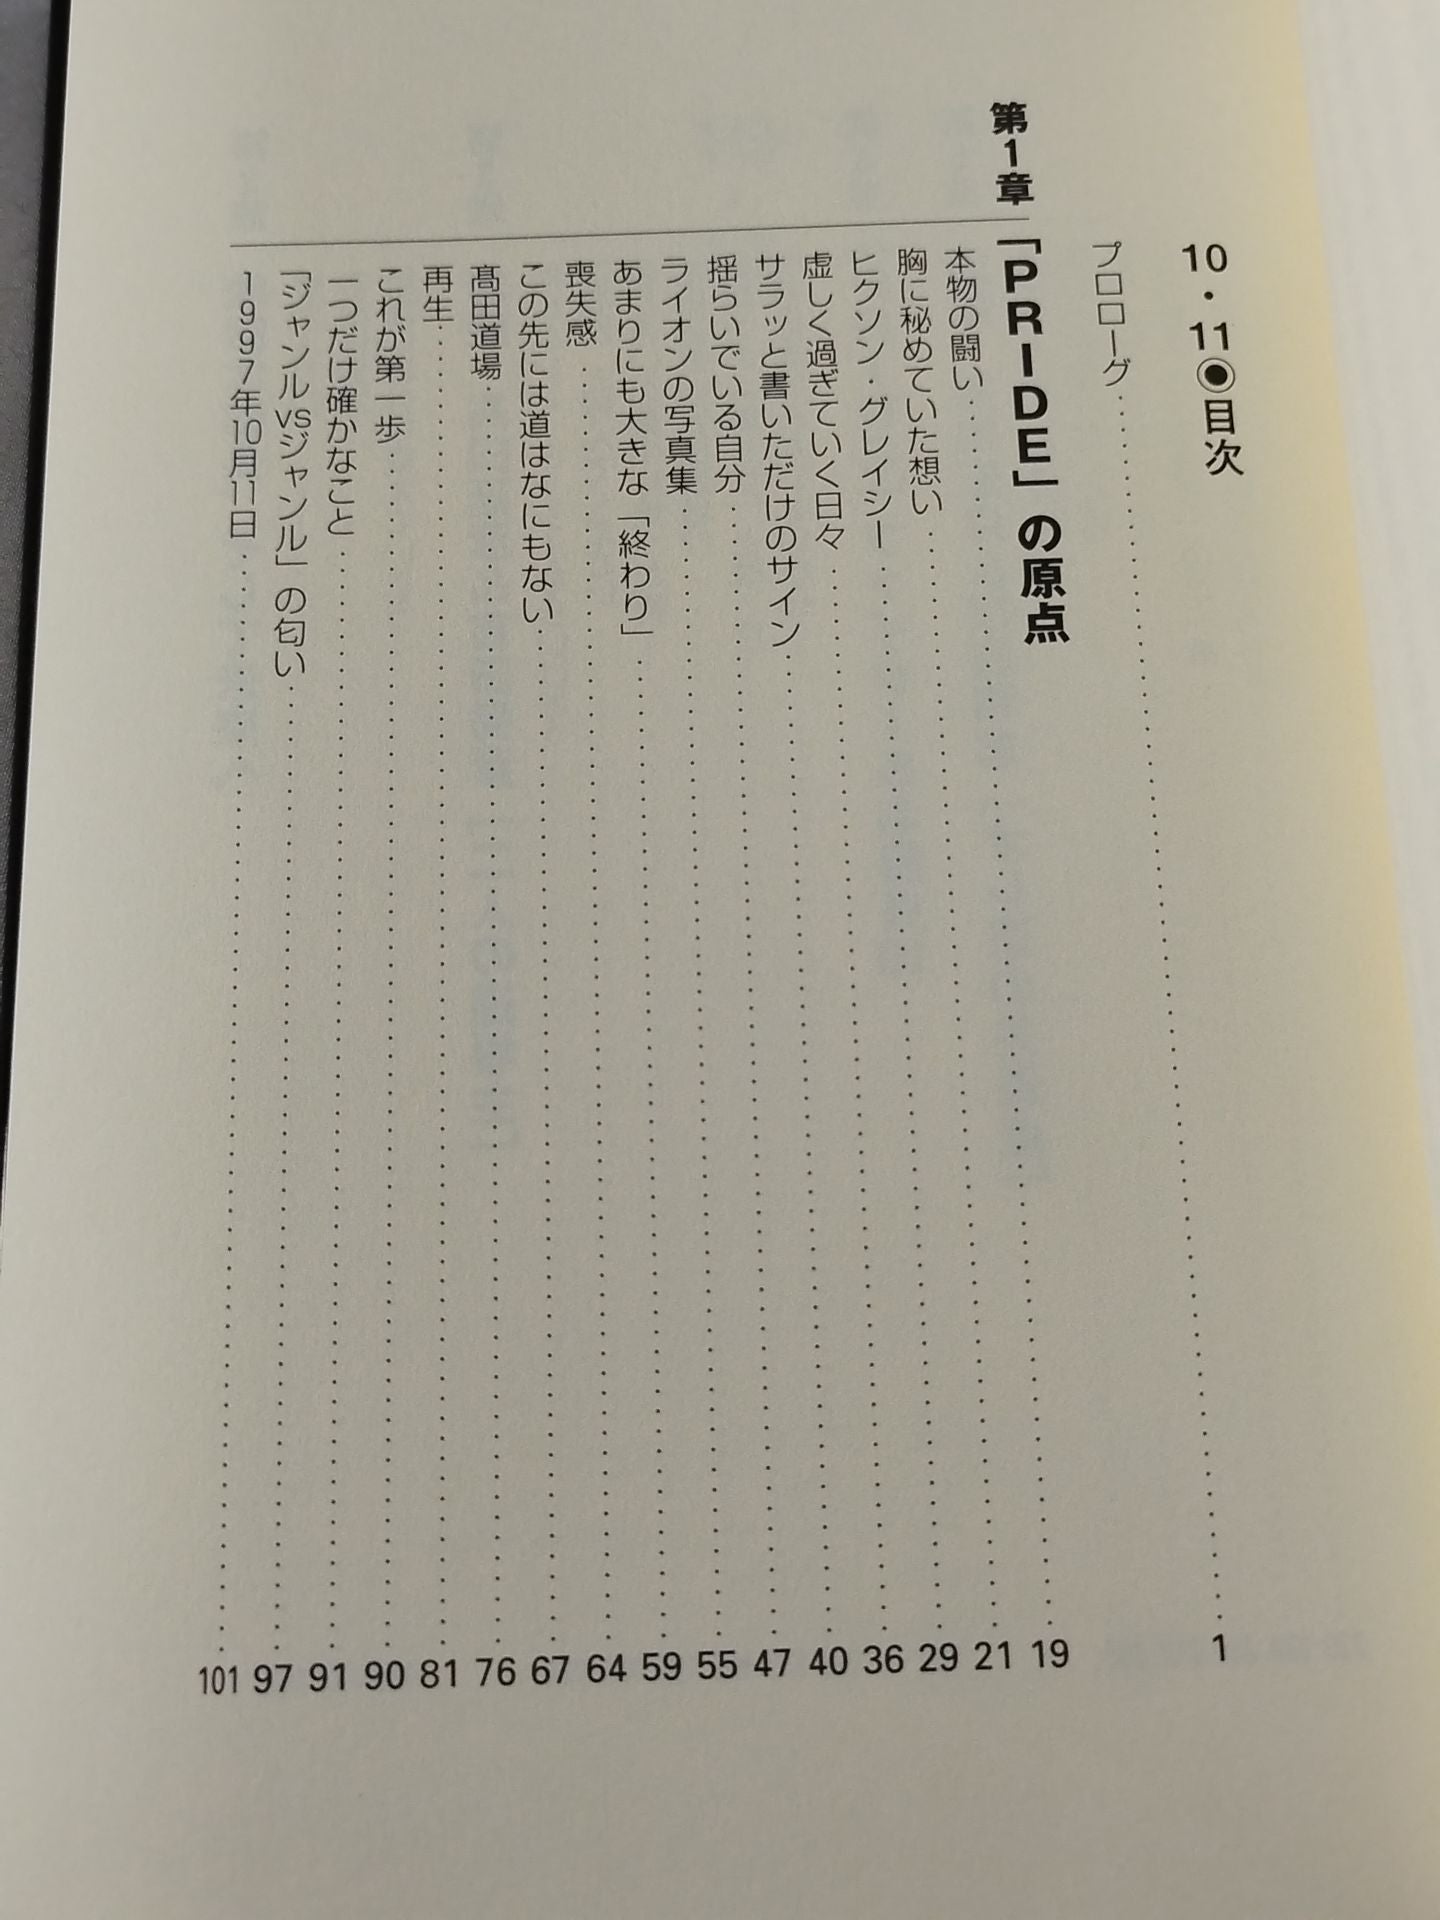 10・11◉目次
プロローグ……1
第1章 「PRIDE」の原点
本物の闘い……19
胸に秘めていた想い……21
ヒクソン・グレイシー……29
虚しく過ぎていく日々……36
サラッと書いただけのサイン……40
揺らいでいる自分……47
ライオンの写真集……55
あまりにも大きな「終わり」……59
喪失感……64
この先には道はなにもない……67
髙田道場……76
再生……81
これが第一歩……90
一つだけ確かなこと……91
「ジャンルvsジャンル」の匂い……97
1997年10月11日……101